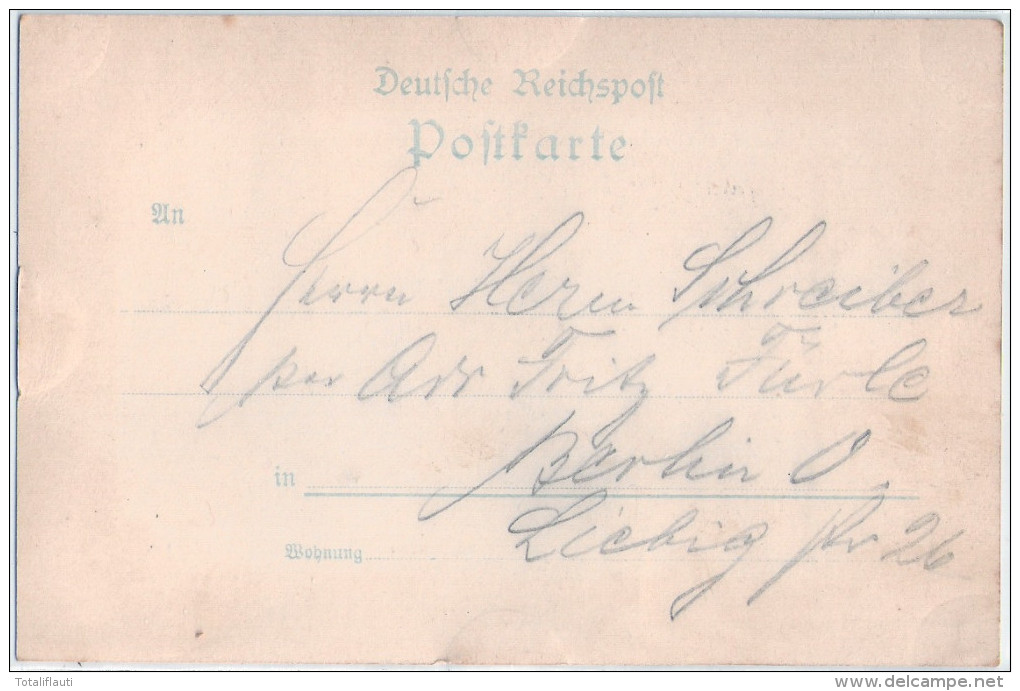 Deutsche Reichspost
Postkarte
An
Herrn Herm Schreiber
per Adr Fritz Fürle
in Berlin O.
Wohnung Liebig str 26
Totaliflauti
www.delcampe.net